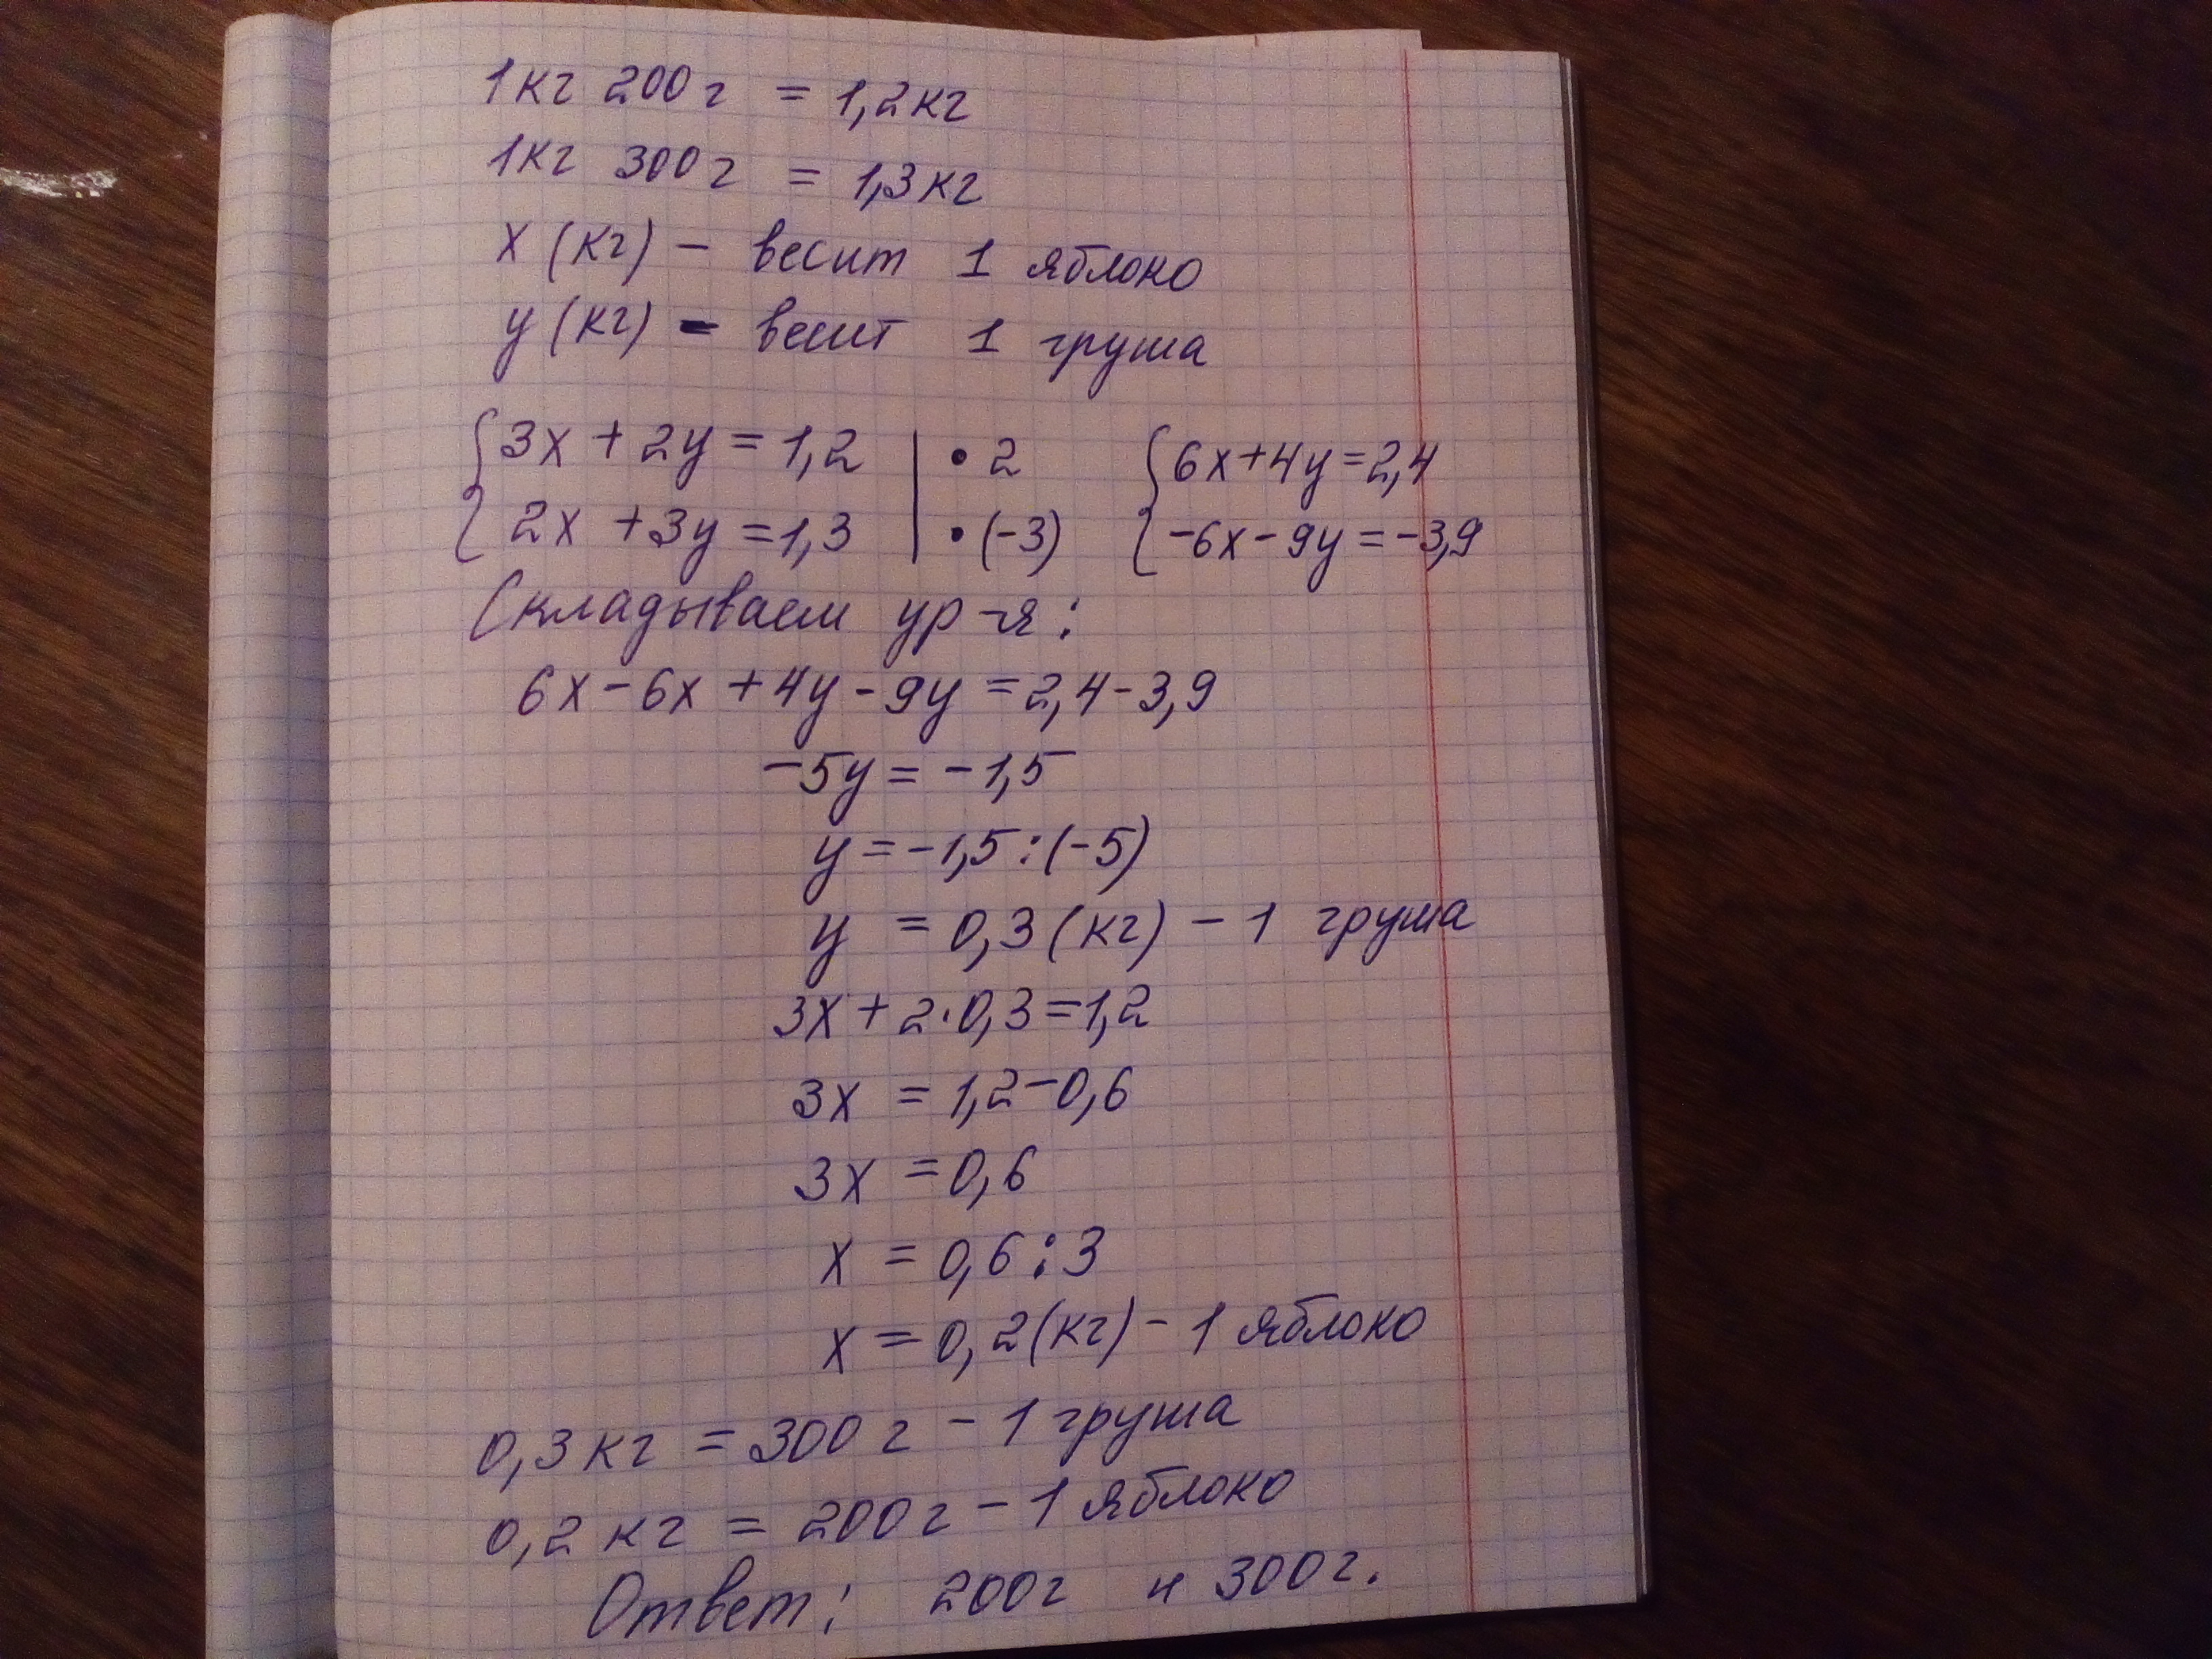 1кг 200г = 1,2кг
1кг 300г = 1,3кг
х (кг) – весит 1 яблоко
у (кг) – весит 1 груша
{3х + 2у = 1,2 | • 2 {6х+4у=2,4
{2х + 3у = 1,3 | • (-3) {-6х-9у=-3,9
Складываем ур-я:
6х-6х+4у-9у=2,4-3,9
-5у = -1,5
у = -1,5 : (-5)
у = 0,3 (кг) – 1 груша
3х + 2·0,3 = 1,2
3х = 1,2-0,6
3х = 0,6
х = 0,6 : 3
х = 0,2 (кг) – 1 яблоко
0,3 кг = 300 г – 1 груша
0,2 кг = 200г – 1 яблоко
Ответ: 200г и 300г.